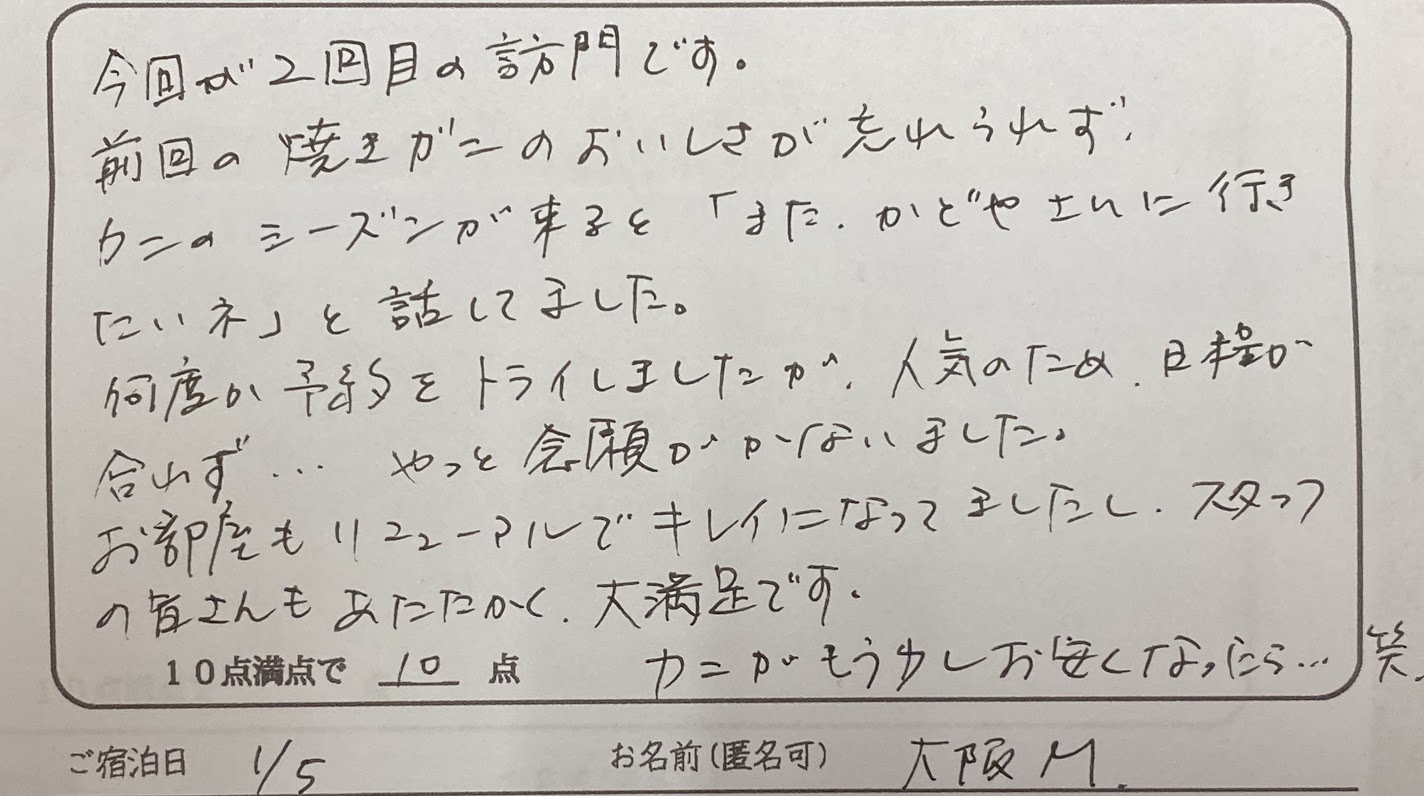 今回が2回目の訪問です。
前回の焼きガニのおいしさが忘れられず、
カニのシーズンが来ると「また、かどやさんに行き
たいネ」と話してました。
何度か予約をトライしましたが、人気のため、日程が
合わず… やっと念願がかないました。
お部屋もリニューアルでキレイになってましたし、スタッフ
の皆さんもあたたかく、大満足です。
10点満点で 10 点 カニがもう少しお安くなったら… 笑
ご宿泊日 1/5 お名前(匿名可) 大阪 M.